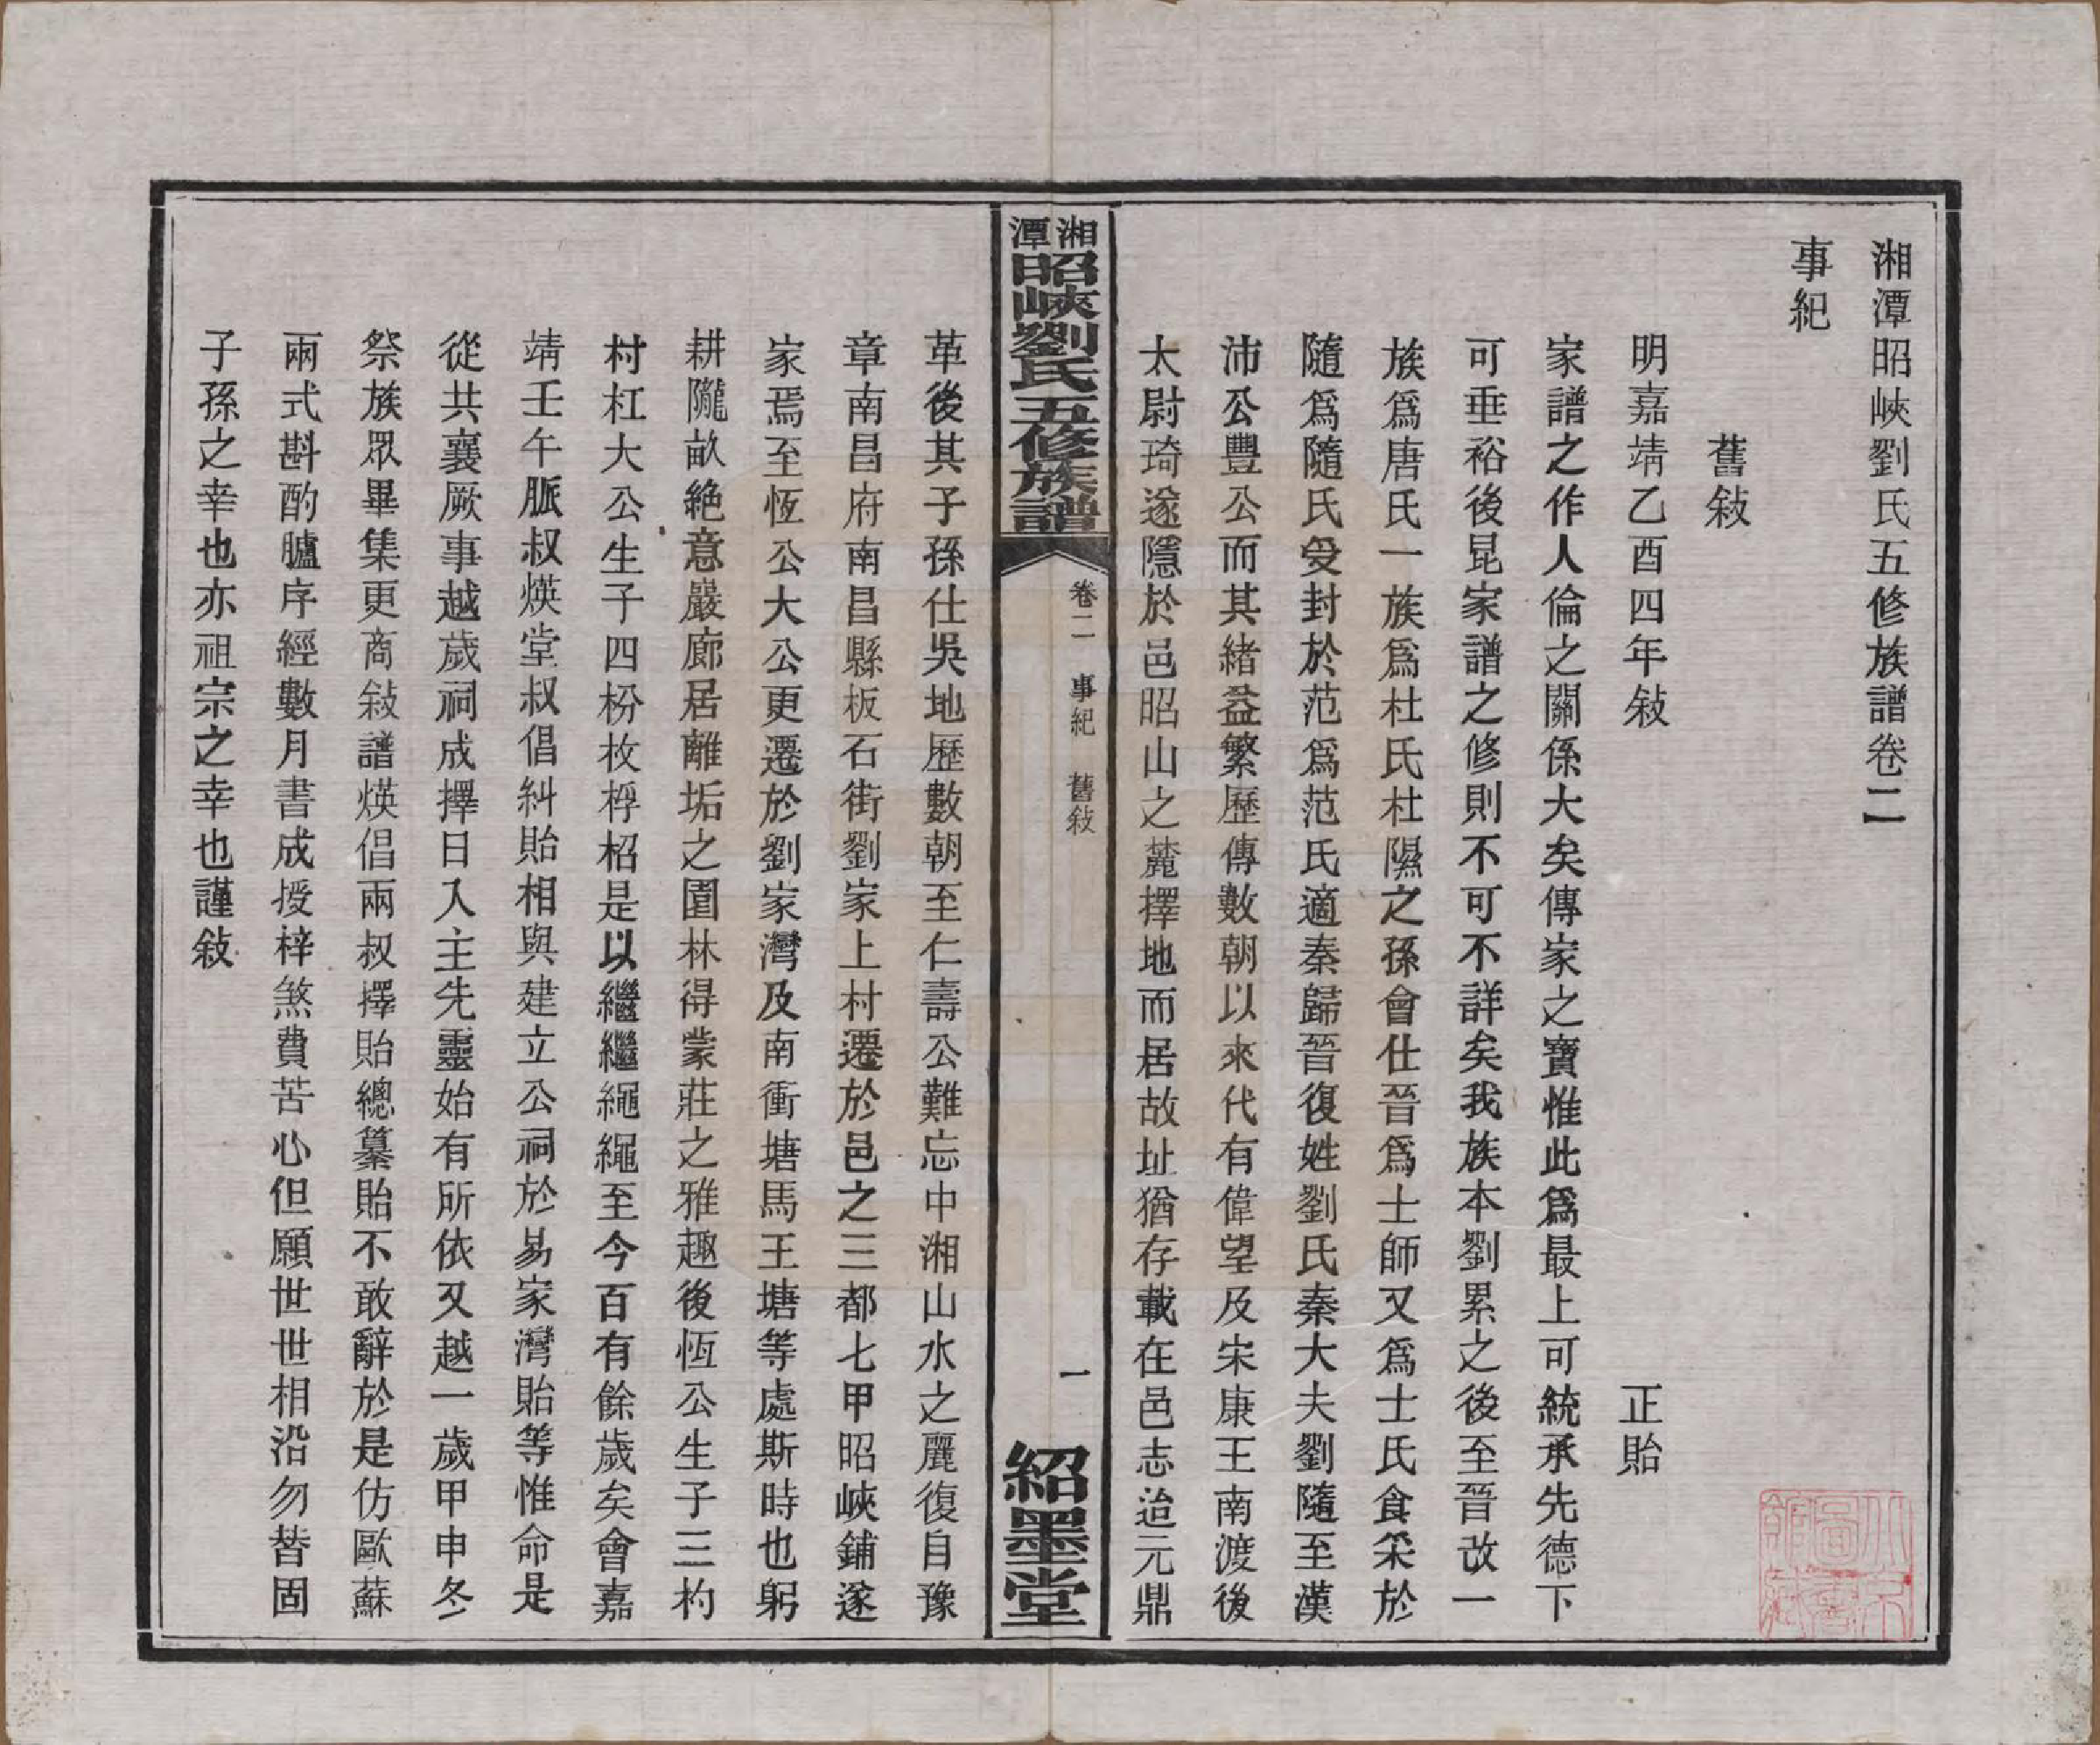 湘潭昭峽劉氏五修族譜卷二
事紀
舊敍
明嘉靖乙酉四年敍　正貽
家譜之作人倫之關係大矣傳家之寶惟此爲最上可統承先德下
可垂裕後昆家譜之修則不可不詳矣我族本劉累之後至晉改一
族爲唐氏一族爲杜氏杜隰之孫會仕晉爲士師又爲士氏食采於
隨爲隨氏受封於范爲范氏適秦歸晉復姓劉氏秦大夫劉隨至漢
沛公豐公而其緒益繁歷傳數朝以來代有偉望及宋康王南渡後
太尉琦遂隱於邑昭山之麓擇地而居故址猶存載在邑志迨元鼎
湘潭昭峽劉氏五修族譜
卷二　事紀　舊敍
一
紹墨堂
革後其子孫仕吳地歷數朝至仁壽公難忘中湘山水之麗復自豫
章南昌府南昌縣板石街劉家上村遷於邑之三都七甲昭峽鋪遂
家焉至恆公大公更遷於劉家灣及南衝塘馬王塘等處斯時也躬
耕隴畝絶意巖廊居離垢之園林得蒙莊之雅趣後恆公生子三杓
村杠大公生子四枌枚桴柖是以繼繼繩繩至今百有餘歲矣會嘉
靖壬午脈叔煐堂叔倡糾貽相與建立公祠於易家灣貽等惟命是
從共襄厥事越歲祠成擇日入主先靈始有所依又越一歲甲申冬
祭族眾畢集更商敍譜煐倡兩叔擇貽總纂貽不敢辭於是仿歐蘇
兩式斟酌臚序經數月書成授梓煞費苦心但願世世相沿勿替固
子孫之幸也亦祖宗之幸也謹敍